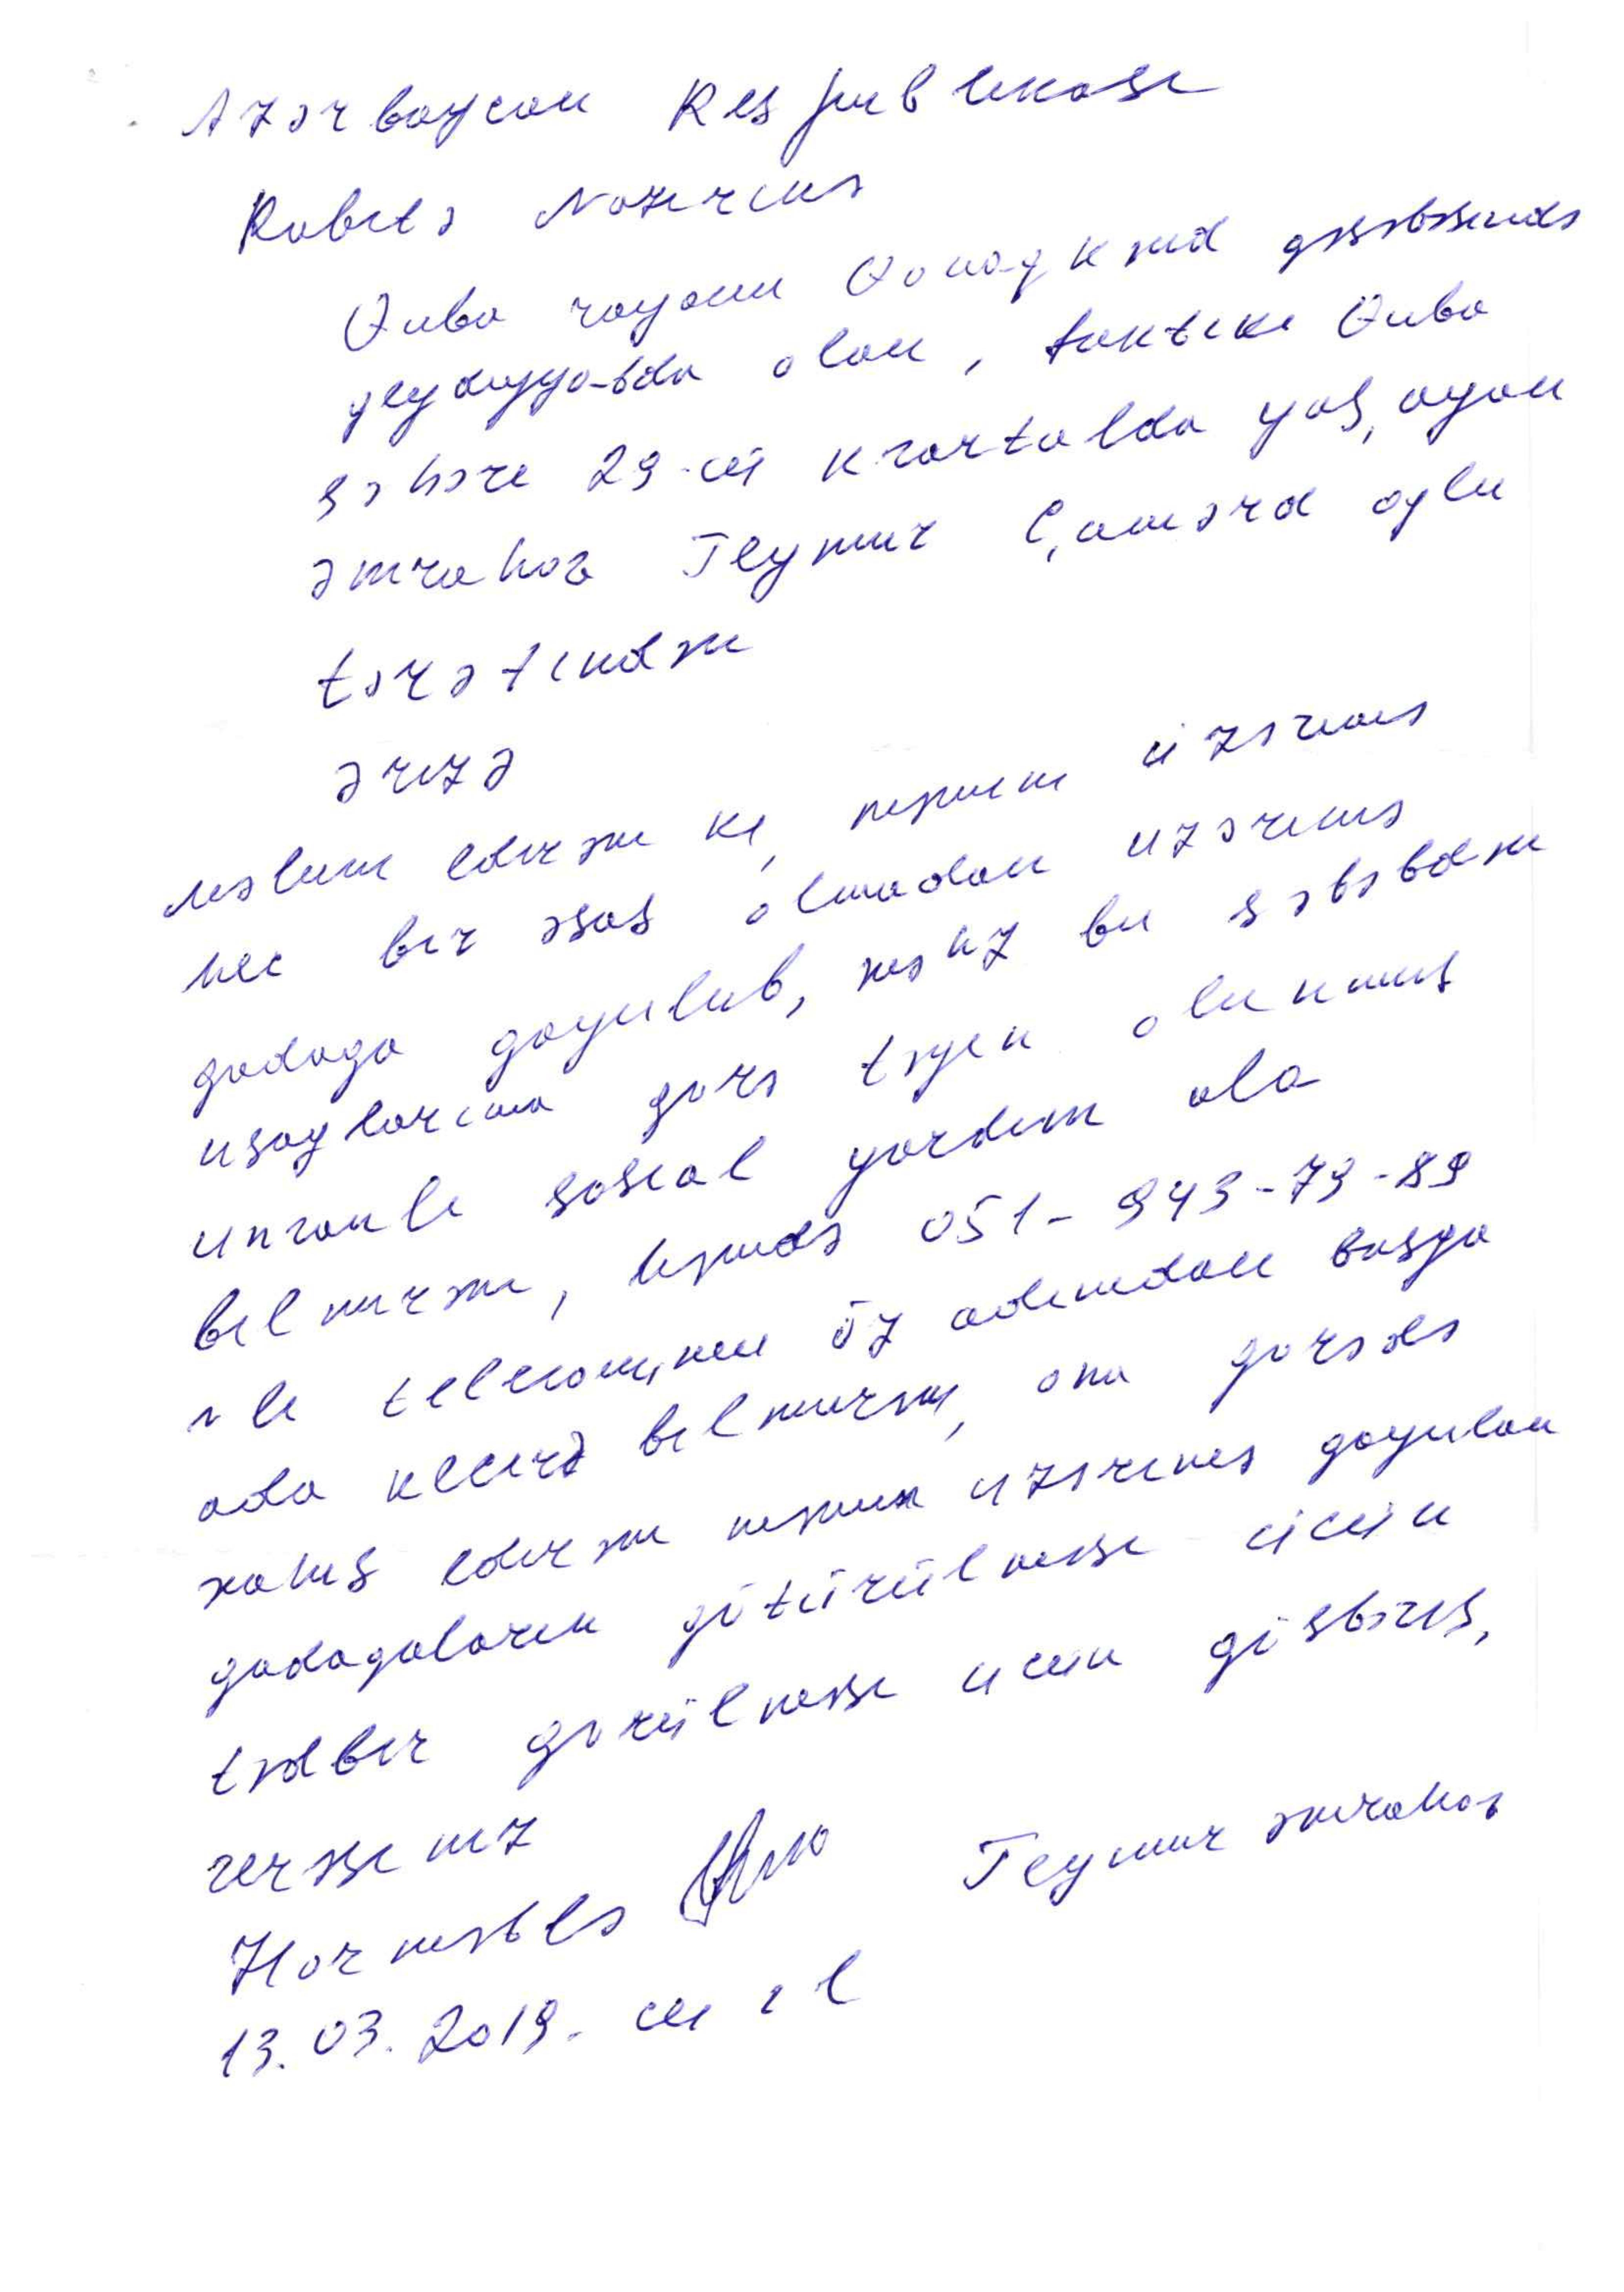 Azərbaycan Respublikası
Rabitə Nazirinə
Quba rayonu Qonaqkənd qəsəbəsində
qeydiyyatda olan, faktiki Quba
şəhəri 29-cü kvartalda yaşayan
Əmrahov Teymur Çamərd oğlu
tərəfindən
Ərizə
Məlum edirəm ki, mənim üzərimə
hec bir əsas olmadan uzərimə
qadaga qoyulub, məhz bu səbəbdən
usaqlarıma gorə təyin olunmuş
unvanlı sosial yardım ala
bilmirəm, həmdə 051-943-79-89
ə li telefonumu öz adımdan başqa
ada kecirə bilmirəm, ona gorədə
xahiş edirəm mənim uzərimə qoyulan
qadağaların götürülməsi ücün
tədbir gorülməsi ucun göstəriş,
verəsiniz
Hörmətlə Teymur Əmrahov
13.03.2019-cu il